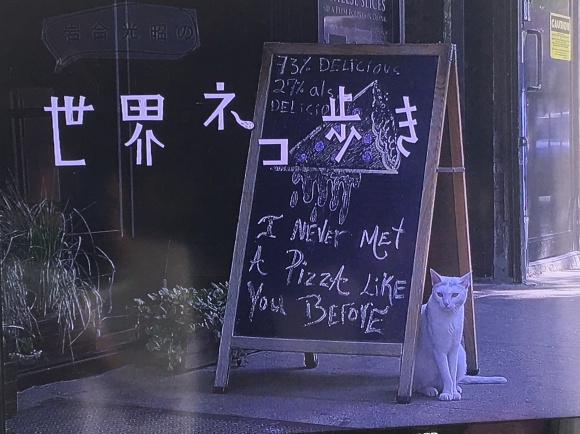 岩合光昭の
世界ネコ歩き
73% DELICIOUS
27% als
DELICIO
I NEVER MET
A PIZZA LIKE
YOU BEFORE